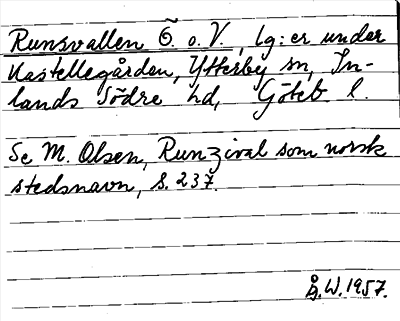 Runsvallen Ö. o. V., lg:er under
Kastellegården, Ytterby sn, In-
lands Södre hd, Göteb l.
Se M. Olsen, Runzival som norsk
stedsnavn, S. 237.
Å.W.1957.